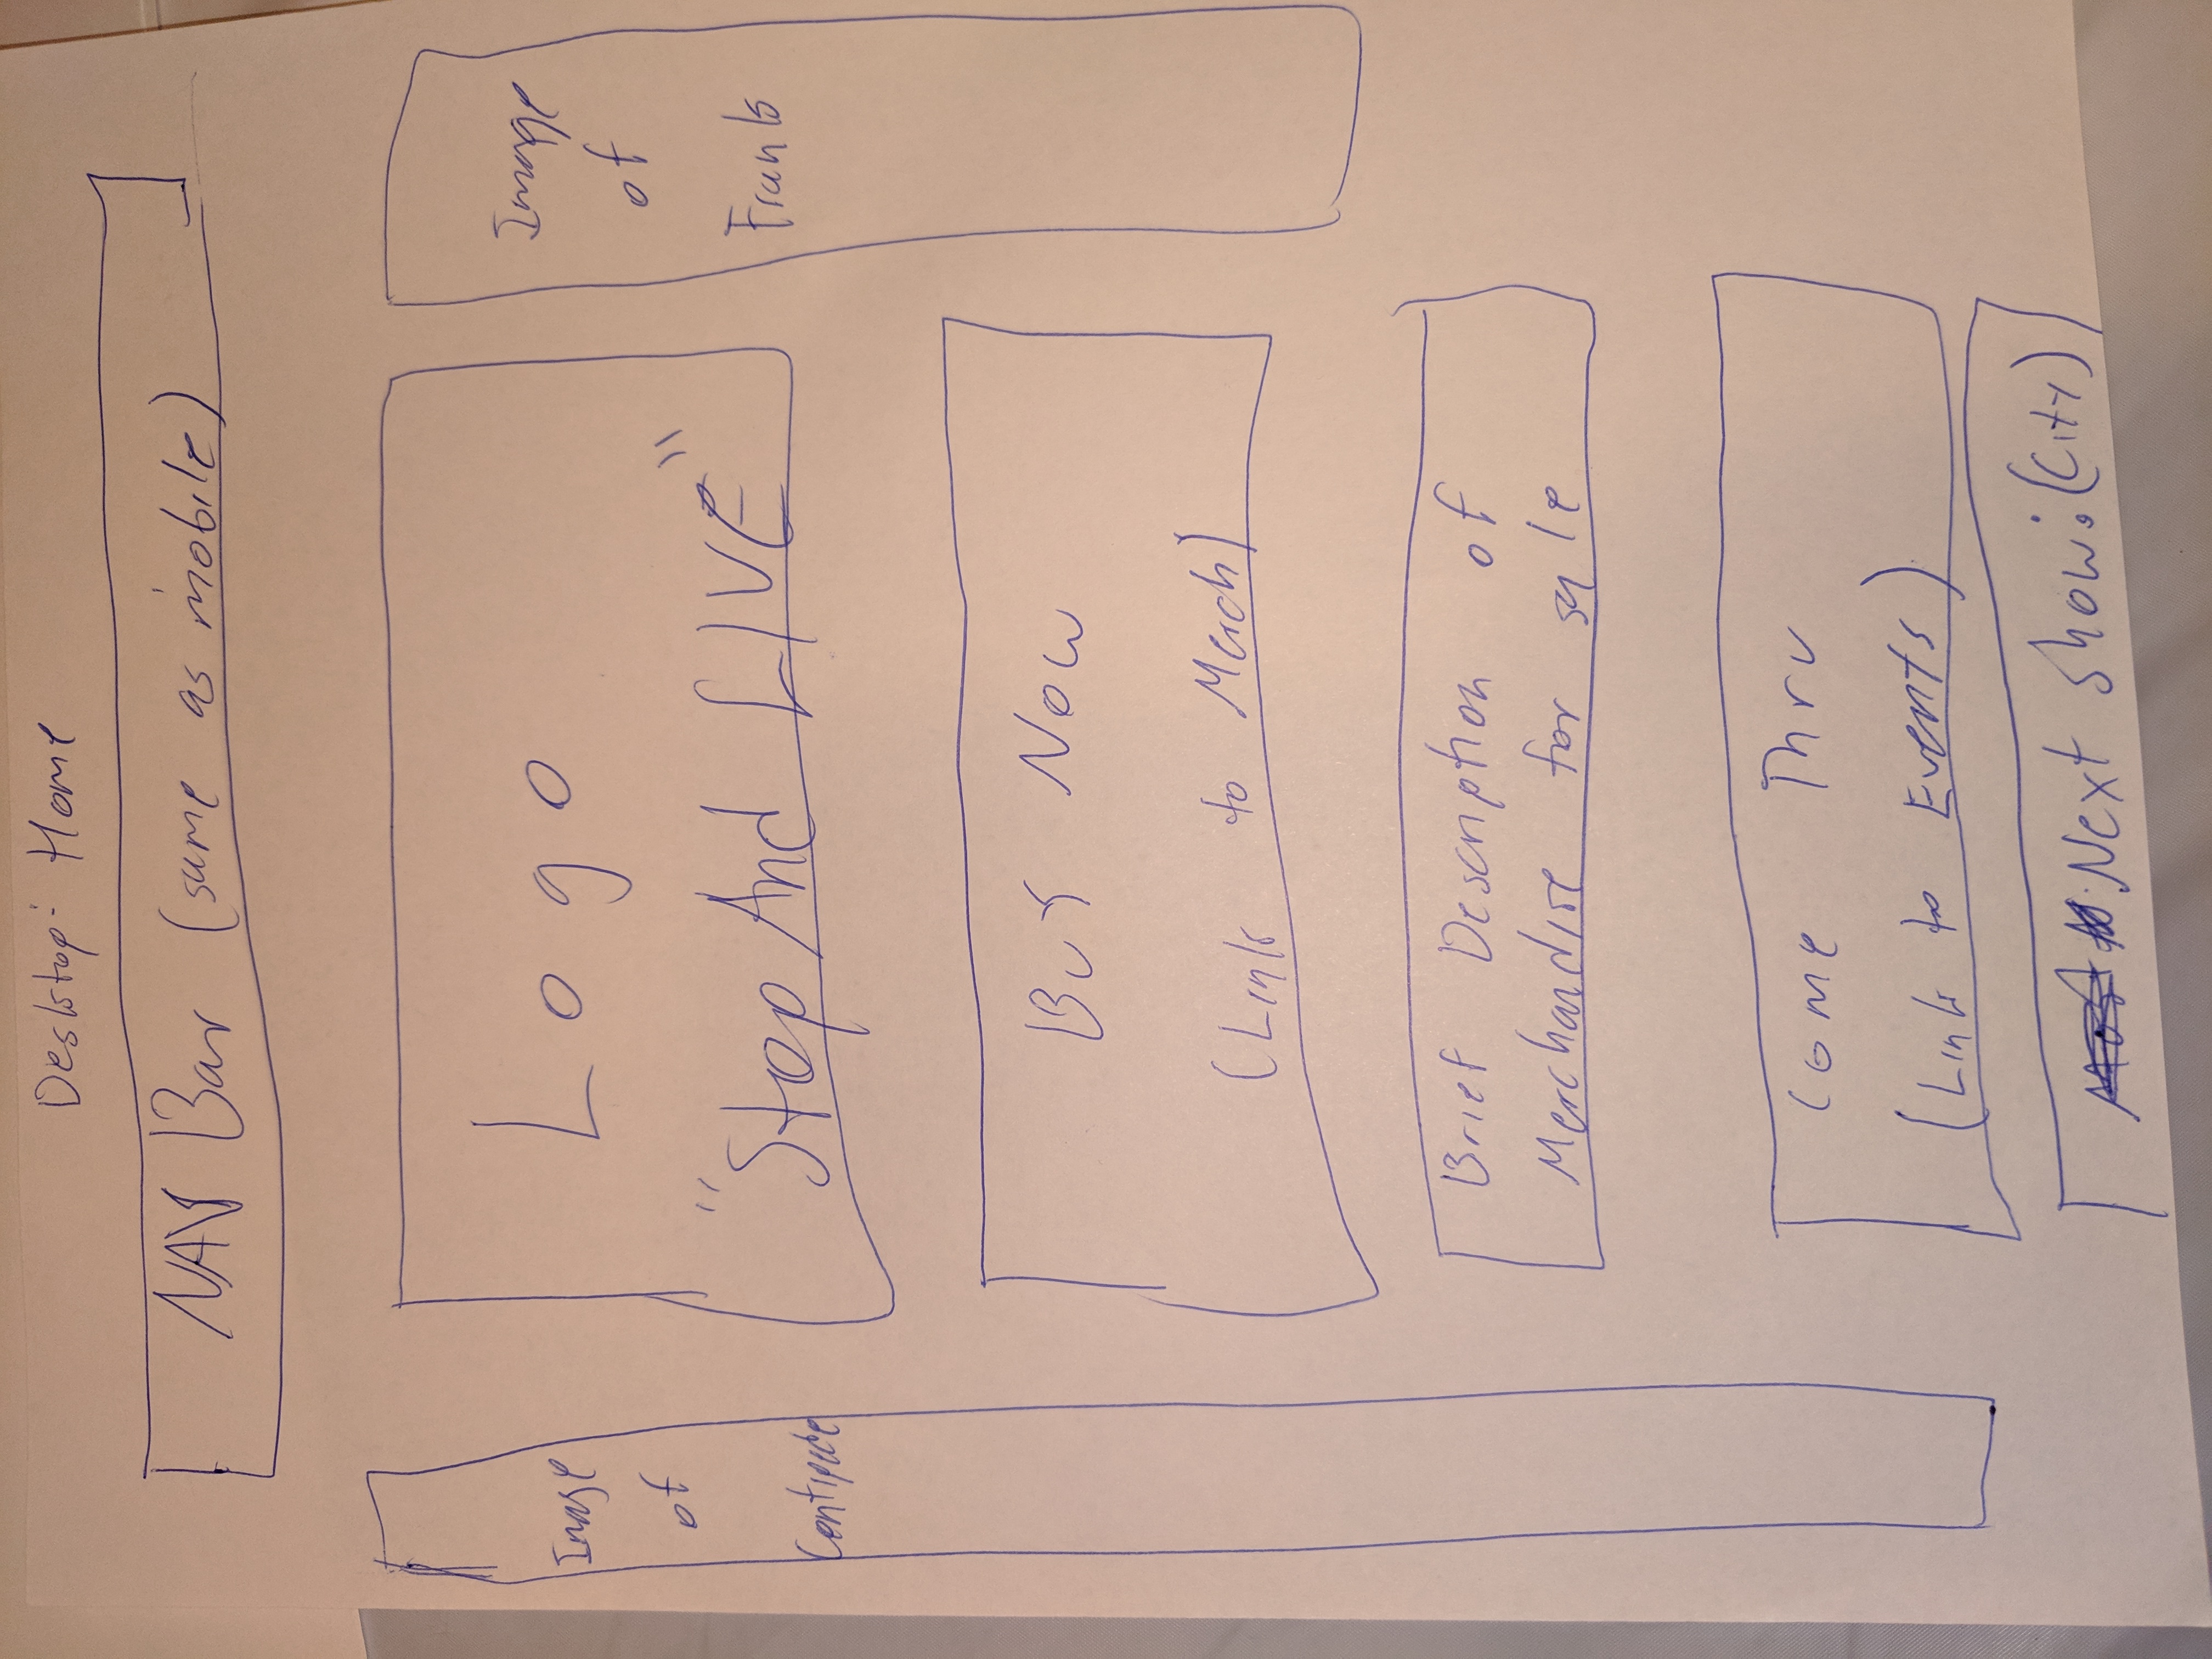 Desktop: Home
NAV Bar (same as mobile)
Image
of
Centipede
Logo
"Stop And LIVE"
Image
of
Frank
Buy Now
(Link to Merch)
Brief Description of
Merchandise for sale
Come Thru
(Link to Events)
Next show: (City)